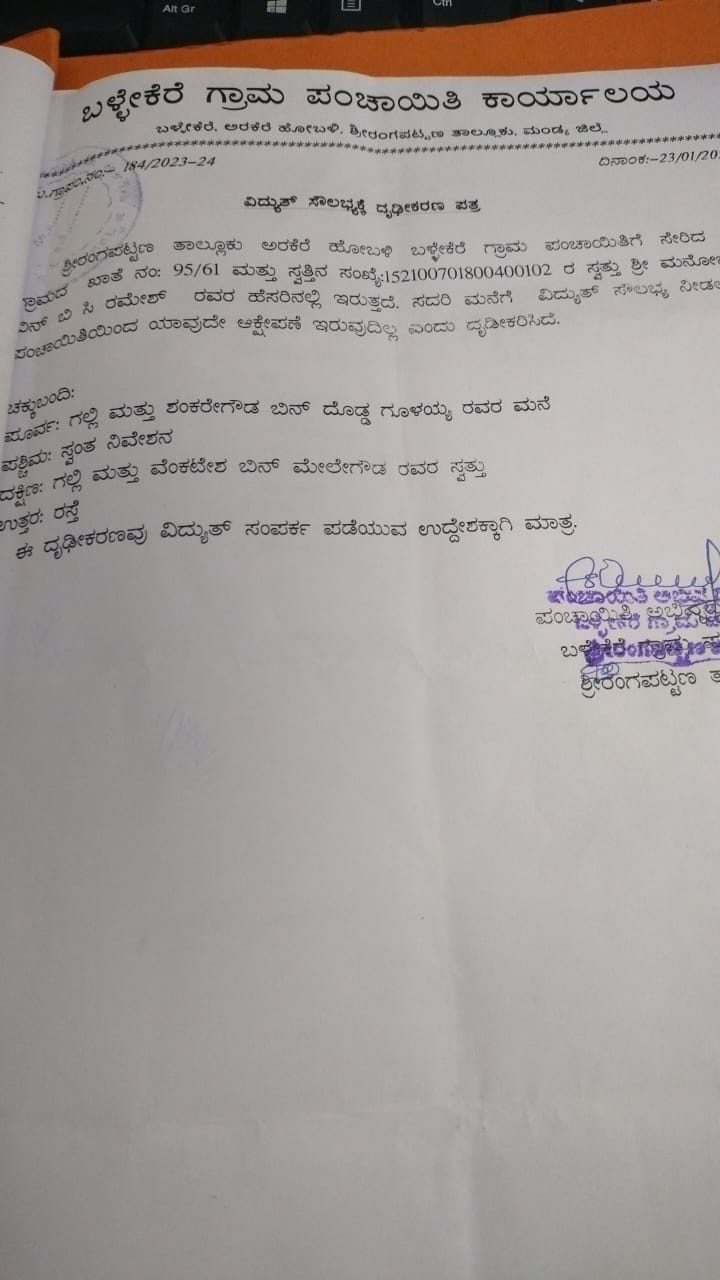 Alt Gr
Ctrl
ಬಳ್ಳೇಕೆರೆ ಗ್ರಾಮ ಪಂಚಾಯಿತಿ ಕಾರ್ಯಾಲಯ
ಬಳ್ಳೇಕೆರೆ, ಅರಕೆರೆ ಹೋಬಳಿ, ಶ್ರೀರಂಗಪಟ್ಟಣ ತಾಲ್ಲೂಕು, ಮಂಡ್ಯ ಜಿಲ್ಲೆ
184/2023-24
ದಿನಾಂಕ:-23/01/20
ವಿದ್ಯುತ್ ಸೌಲಭ್ಯಕ್ಕೆ ದೃಢೀಕರಣ ಪತ್ರ
ಶ್ರೀರಂಗಪಟ್ಟಣ ತಾಲ್ಲೂಕು ಅರಕೆರೆ ಹೋಬಳಿ ಬಳ್ಳೇಕೆರೆ ಗ್ರಾಮ ಪಂಚಾಯಿತಿಗೆ ಸೇರಿದ
ಗ್ರಾಮದ ಖಾತೆ ನಂ: 95/61 ಮತ್ತು ಸ್ವತ್ತಿನ ಸಂಖ್ಯೆ:152100701800400102 ರ ಸ್ವತ್ತು ಶ್ರೀ
ಬಿನ್ ಬಿ ಸಿ ರಮೇಶ್ ರವರ ಹೆಸರಿನಲ್ಲಿ ಇರುತ್ತದೆ. ಸದರಿ ಮನೆಗೆ ವಿದ್ಯುತ್ ಸೌಲಭ್ಯ
ಪಂಚಾಯಿತಿಯಿಂದ ಯಾವುದೇ ಆಕ್ಷೇಪಣೆ ಇರುವುದಿಲ್ಲ ಎಂದು ದೃಡೀಕರಿಸಿದೆ.
ಚಕ್ಕುಬಂದಿ:
ಪೂರ್ವ: ಗಲ್ಲಿ ಮತ್ತು ಶಂಕರೇಗೌಡ ಬಿನ್ ದೊಡ್ಡ ಗೂಳಯ್ಯ ರವರ ಮನೆ
ಪಶ್ಚಿಮ: ಸ್ವಂತ ನಿವೇಶನ
ದಕ್ಷಿಣ: ಗಲ್ಲಿ ಮತ್ತು ವೆಂಕಟೇಶ ಬಿನ್ ಮೇಲೇಗೌಡ ರವರ ಸ್ವತ್ತು
ಉತ್ತರ: ರಸ್ತೆ
ಈ ದೃಢೀಕರಣವು ವಿದ್ಯುತ್ ಸಂಪರ್ಕ ಪಡೆಯುವ ಉದ್ದೇಶಕ್ಕಾಗಿ ಮಾತ್ರ.
ಪಂಚಾಯಿತಿ
ಪಂಚಾಯಿತಿ
ಬಳ್ಳೇಕೆರೆ ಗ್ರಾಮ
ಶ್ರೀರಂಗಪಟ್ಟಣ